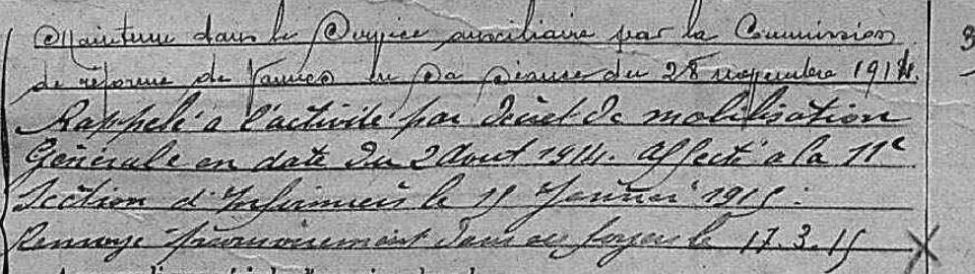 Maintenu dans le Service auxiliaire par la Commission
de réforme de Vannes en sa séance du 28 novembre 1914.
Rappelé à l'activité par décret de mobilisation
Générale en date du 2 Aout 1914. Affecté à la 11e
Section d'Infirmiers le 15 Janvier 1915.
Renvoyé provisoirement dans ses foyers le 17.3.15